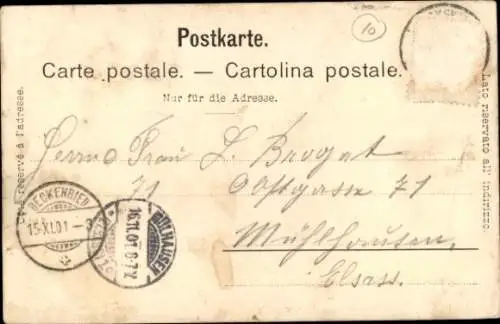 10
Postkarte.
Carte postale. — Cartolina postale.
Nur für die Adresse.
Côté réservé à l'adresse.
Lato riservato all' indirizzo.
Frau L.
71 71
Mühlhausen,
Elsass.
BECKENRIED
15.XI.01
MÜLHAUSEN
16.11.01. 6-7V.